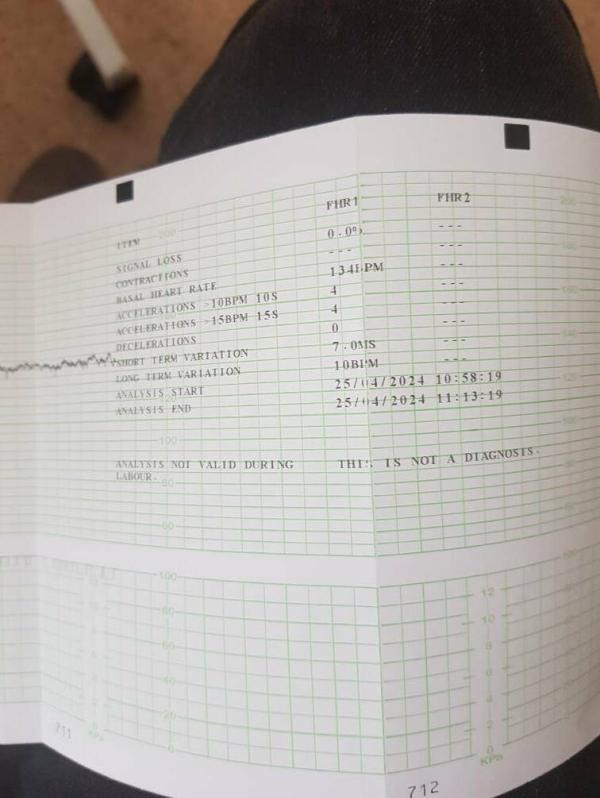 ITEM FHR1 FHR2
SIGNAL LOSS 0.0% ---
CONTRACTIONS ---
BASAL HEART RATE 134BPM ---
ACCELERATIONS >10BPM 10S 4 ---
ACCELERATIONS >15BPM 15S 4 ---
DECELERATIONS 0 ---
SHORT TERM VARIATION 7.0MS ---
LONG TERM VARIATION 10BPM ---
ANALYSIS START 25/04/2024 10:58:19
ANALYSIS END 25/04/2024 11:13:19
ANALYSIS NOT VALID DURING THIS IS NOT A DIAGNOSIS.
LABOUR.
100
80
60
100
80
60
40
20
0
12
10
8
6
4
2
0
KPa
KPa
711
712